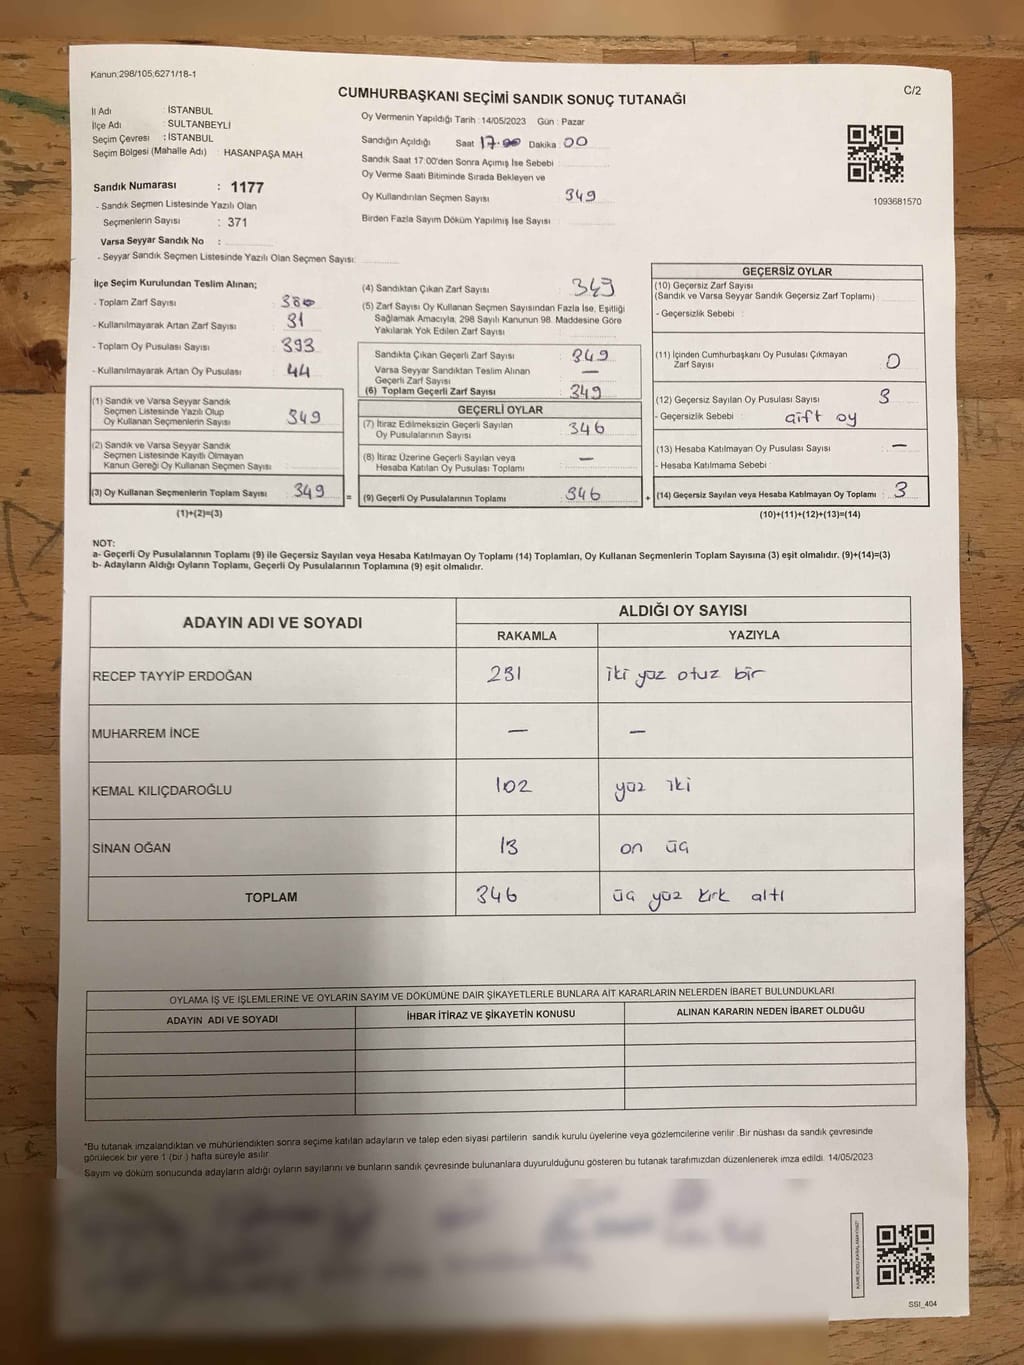 Kanun:298/105;6271/18-1
C/2
CUMHURBAŞKANI SEÇİMİ SANDIK SONUÇ TUTANAĞI
İl Adı : İSTANBUL
İlçe Adı : SULTANBEYLİ
Seçim Çevresi : İSTANBUL
Seçim Bölgesi (Mahalle Adı) : HASANPAŞA MAH
Sandık Numarası : 1177
- Sandık Seçmen Listesinde Yazılı Olan
Seçmenlerin Sayısı : 371
Varsa Seyyar Sandık No :
- Seyyar Sandık Seçmen Listesinde Yazılı Olan Seçmen Sayısı:
Oy Vermenin Yapıldığı Tarih : 14/05/2023 Gün : Pazar
Sandığın Açıldığı Saat 17.00 Dakika : 00
Sandık Saat 17:00'den Sonra Açımış İse Sebebi :
Oy Verme Saati Bitiminde Sırada Bekleyen ve
Oy Kullandırılan Seçmen Sayısı : 349
Birden Fazla Sayım Döküm Yapılmış İse Sayısı :
1093681570
İlçe Seçim Kurulundan Teslim Alınan;
- Toplam Zarf Sayısı : 380
- Kullanılmayarak Artan Zarf Sayısı : 31
- Toplam Oy Pusulası Sayısı : 393
- Kullanılmayarak Artan Oy Pusulası : 44
(1) Sandık ve Varsa Seyyar Sandık
Seçmen Listesinde Yazılı Olup
Oy Kullanan Seçmenlerin Sayısı : 349
(2) Sandık ve Varsa Seyyar Sandık
Seçmen Listesinde Kayıtlı Olmayan
Kanun Gereği Oy Kullanan Seçmen Sayısı :
(3) Oy Kullanan Seçmenlerin Toplam Sayısı : 349
(1)+(2)=(3)
=
(4) Sandıktan Çıkan Zarf Sayısı : 349
(5) Zarf Sayısı Oy Kullanan Seçmen Sayısından Fazla İse, Eşitliği
Sağlamak Amacıyla; 298 Sayılı Kanunun 98. Maddesine Göre
Yakılarak Yok Edilen Zarf Sayısı :
Sandıkta Çıkan Geçerli Zarf Sayısı : 349
Varsa Seyyar Sandıktan Teslim Alınan
Geçerli Zarf Sayısı : —
(6) Toplam Geçerli Zarf Sayısı : 349
GEÇERLİ OYLAR
(7) İtiraz Edilmeksizin Geçerli Sayılan
Oy Pusulalarının Sayısı : 346
(8) İtiraz Üzerine Geçerli Sayılan veya
Hesaba Katılan Oy Pusulası Toplamı : —
(9) Geçerli Oy Pusulalarının Toplamı : 346
+
GEÇERSİZ OYLAR
(10) Geçersiz Zarf Sayısı
(Sandık ve Varsa Seyyar Sandık Geçersiz Zarf Toplamı) :
- Geçersizlik Sebebi :
(11) İçinden Cumhurbaşkanı Oy Pusulası Çıkmayan
Zarf Sayısı : 0
(12) Geçersiz Sayılan Oy Pusulası Sayısı : 3
- Geçersizlik Sebebi : çift oy
(13) Hesaba Katılmayan Oy Pusulası Sayısı : —
- Hesaba Katılmama Sebebi :
(14) Geçersiz Sayılan veya Hesaba Katılmayan Oy Toplamı : 3
(10)+(11)+(12)+(13)=(14)
NOT:
a- Geçerli Oy Pusulalarının Toplamı (9) ile Geçersiz Sayılan veya Hesaba Katılmayan Oy Toplamı (14) Toplamları, Oy Kullanan Seçmenlerin Toplam Sayısına (3) eşit olmalıdır. (9)+(14)=(3)
b- Adayların Aldığı Oyların Toplamı, Geçerli Oy Pusulalarının Toplamına (9) eşit olmalıdır.
ADAYIN ADI VE SOYADI
ALDIĞI OY SAYISI
RAKAMLA YAZIYLA
RECEP TAYYİP ERDOĞAN 231 iki yüz otuz bir
MUHARREM İNCE — —
KEMAL KILIÇDAROĞLU 102 yüz iki
SİNAN OĞAN 13 on üç
TOPLAM 346 üç yüz kırk altı
OYLAMA İŞ VE İŞLEMLERİNE VE OYLARIN SAYIM VE DÖKÜMÜNE DAİR ŞİKAYETLERLE BUNLARA AİT KARARLARIN NELERDEN İBARET BULUNDUKLARI
ADAYIN ADI VE SOYADI İHBAR İTİRAZ VE ŞİKAYETİN KONUSU ALINAN KARARIN NEDEN İBARET OLDUĞU
*Bu tutanak imzalandıktan ve mühürlendikten sonra seçime katılan adayların ve talep eden siyasi partilerin sandık kurulu üyelerine veya gözlemcilerine verilir .Bir nüshası da sandık çevresinde
görülecek bir yere 1 (bir ) hafta süreyle asılır
Sayım ve döküm sonucunda adayların aldığı oyların sayılarını ve bunların sandık çevresinde bulunanlara duyurulduğunu gösteren bu tutanak tarafımızdan düzenlenerek imza edildi. 14/05/2023
KARE KODU KARALAMAYINIZ!
SSI_404